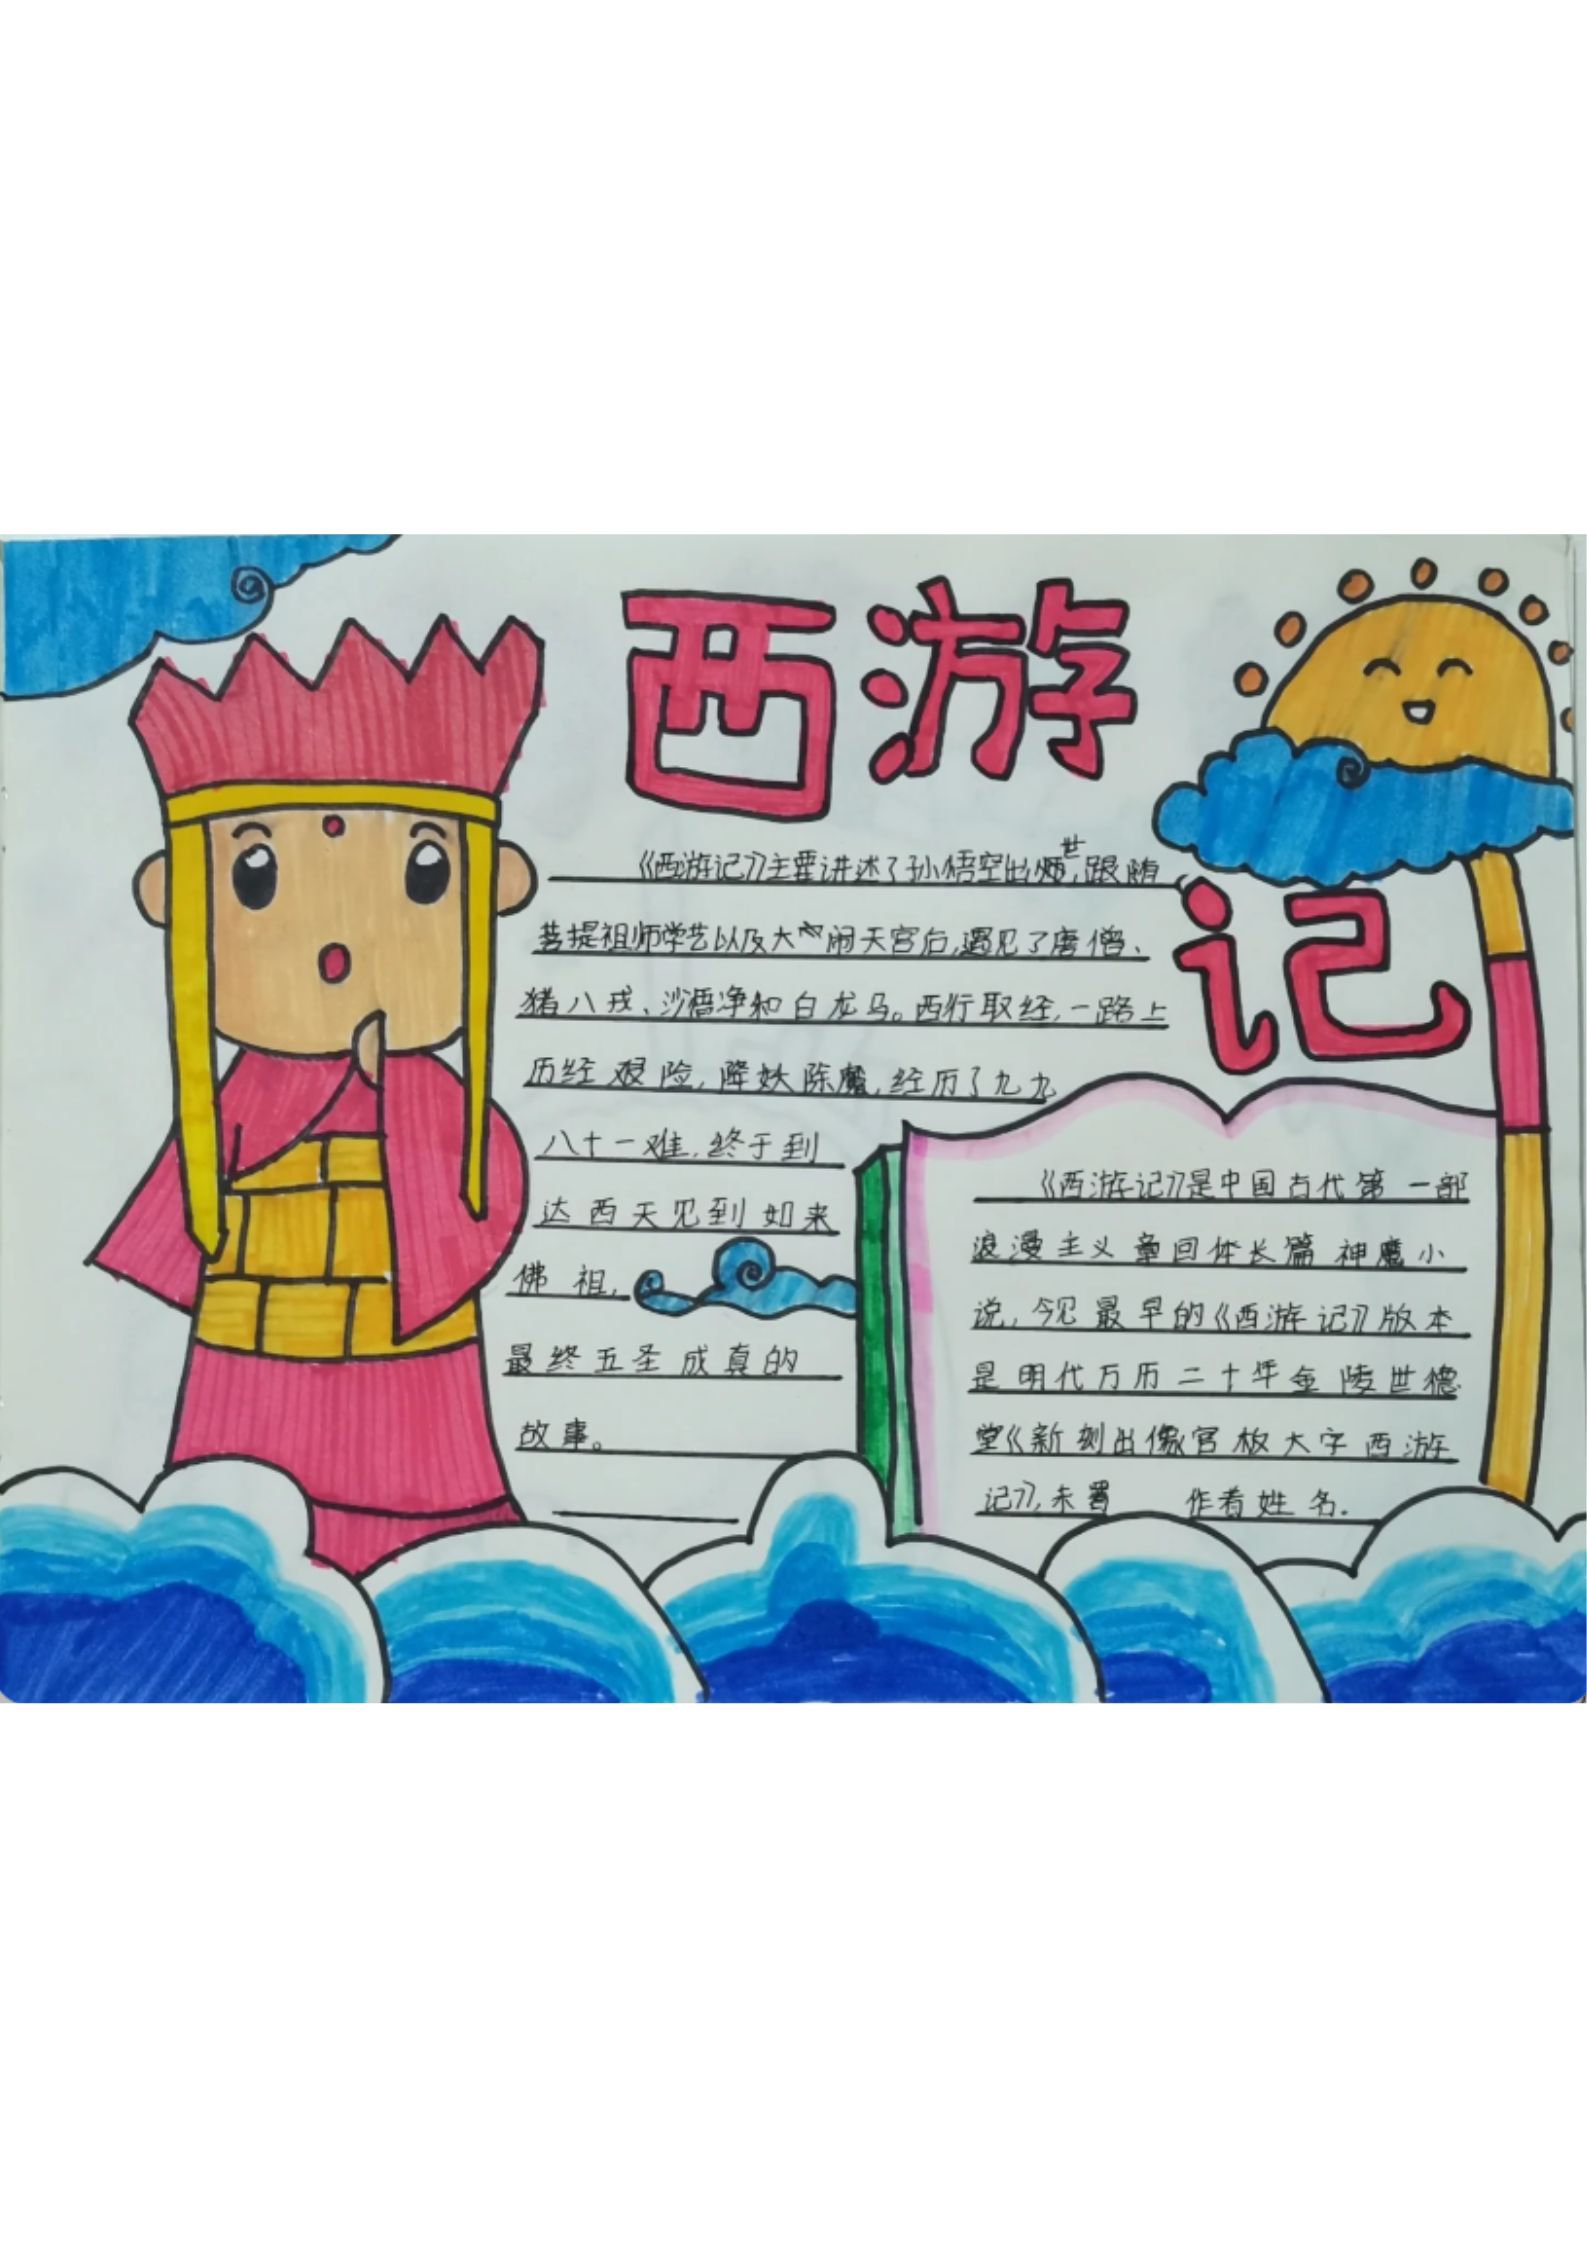 西游
记
《西游记》主要讲述了孙悟空出世,跟随
菩提祖师学艺以及大闹天宫后,遇见了唐僧、
猪八戒、沙悟净和白龙马。西行取经,一路上
历经艰险,降妖除魔,经历了九九
八十一难,终于到
达西天见到如来
佛祖,
最终五圣成真的
故事。
《西游记》是中国古代第一部
浪漫主义章回体长篇神魔小
说,今见最早的《西游记》版本
是明代万历二十年金陵世德
堂《新刻出像官板大字西游
记》,未署 作者姓名.